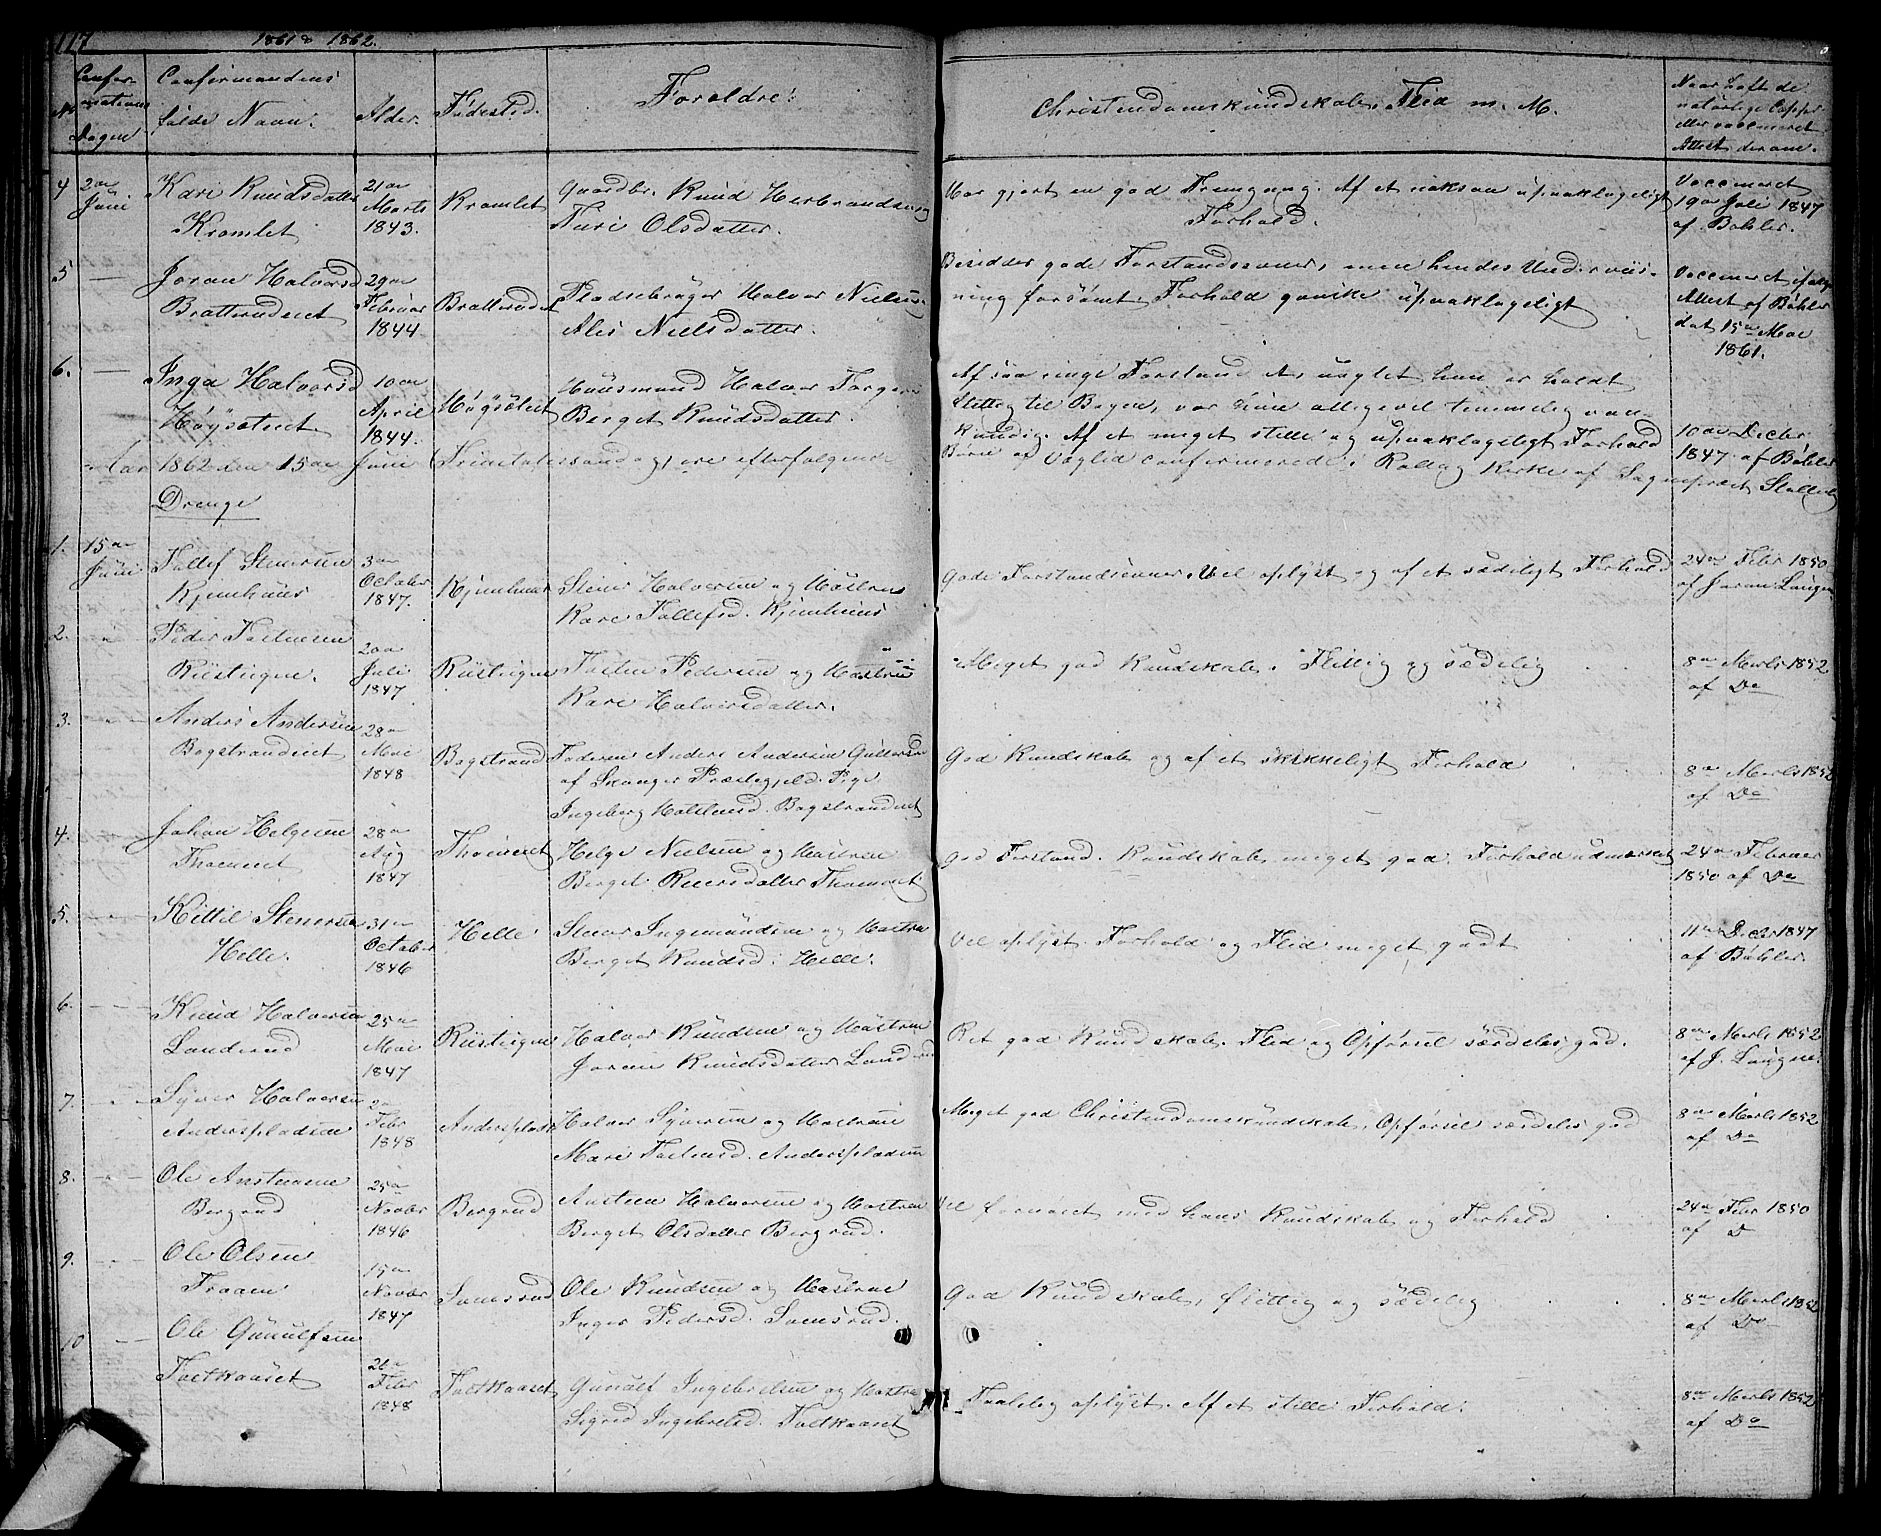 117
1861 & 1862.
No
Confir-
mations
Dagen
Confirmandens
fulde Navn.
Alder.
Fødested.
Forældre:
Christendomskundskab, Flid m. M.
Naar hafte de
naturlige Copper
eller vaccineret
Attest derom.
4
2den
Juni
Kari Knudsdatter
Kromlet
21de
Marts
1843.
Kromlet
Gaardbr. Knud Herbrandsen og
Turi Olsdatter.
Har gjort en god Fremgang. Af et voksen upaaklageligt
Forhold.
Vaccineret
19de Juli 1847
af Bøhler.
5
Joran Halvorsd
Bratterudeiet
29de
Februar
1844
Bratterudeiet
Pladsebruger Halvor Nielsen og
Alis Nielsdatter.
Besidder gode Forstandsevner, men hendes Underviis-
ning forsømt. Forhold ganske upaaklageligt
Vaccineret ifølge
Attest af Bøhler
dat 15de Mai
1861.
6.
Inga Halvorsd
Høgsæteiet
10de
April
1844.
Høgsæteiet
Huusmand Halvor Torgers
Berget Knudsdatter.
Af saa ringe Forstand At, uagtet hun er holdt
flittig til Bogen, var hun alligevel temmelig van-
kundig. Af et meget stille og upaaklageligt Forhold
10de Decbr
1847 af Bøhler
Aar 1862 den 15de Juni (Trinitatissøndag) ere efterfølgende
Børn af Veglid confirmerede i Rollag Kirke af Sognepræst
Drenge
1.
15de
Juni
Tollef Stenersen
Kjemhuus
3de
October
1847.
Kjemhuus
Stener Halvorsen og Hustrue
Kare Tollefsd. Kjemhuus
Gode Forstandsevner. Vel oplyst og af et sædeligt Forhold
24de Febr 1850
af Joran Laugen
2.
Peder Tostensen
Rusteigne.
20de
Juli
1847
Rusteigne
Tosten Pedersen og Hustrue
Kare Halvorsdatter.
Meget god Kundskab. Flittig og sædelig
8de Marts 1852
af Do
3.
Anders Andersen
Bogstrandeiet
28de
Mai
1848
Bogstrand
Faderen Anders Andersen Gulliksrud
af Skauger Præstegjeld. Pige
Ingeborg Halstensd. Bogstrandeiet
God Kundskab og af et skikkeligt Forhold
8de Marts 1852
af Do
4.
Johan Helgesen
Thoeneiet
28de
Aug
1847
Thoeneiet
Helge Nielsen og Hustrue
Berget Reiersdatter Thoeneiet
God Forstand. Kundskab meget god. Forhold udmærket
24de Februar
1850 af Do
5.
Kittil Stenersen
Helle.
31te
October
1846
Helle
Stener Ingemundsen og Hustrue
Berget Knudsd: Helle.
Vel oplyst. Forhold og Flid meget godt
11te Decbr 1847
af Bøhler.
6.
Knud Halvorsen
Landerud
25de
Mai
1847
Rusteigne
Halvor Knudsen og Hustrue
Joran Knudsdatter Landerud
Ret god Kundskab. Flid og Opførsel særdeles god.
8de Marts 1852
af J. Laugne.
7.
Syver Halvorsen
Anderspladsen
2de
Febr
1848
Anderspladsen
Halvor Syversen og Hustrue
Mari Tostensd. Anderspladsen
Meget god Christendomskundskab, Opførsel særdeles god
8de Marts 1852
af Do
8.
Ole Anstensen
Bergrud
25de
Novbr
1846
Bergrud
Austen Halvorsen og Hustrue
Berget Olsdatter Bergrud.
Vel fornøiet med hans Kundskab og Forhold
24de Febr 1850
af Do
9.
Ole Olsen
Fraaen
15de
Novbr
1847
Somsrud
Ole Knudsen og Hustrue
Inger Pedersd. Somsrud.
God Kundskab, flittig og sædelig
8de Marts 1852
af Do
10
Ole Gunulfsen
Toltkaaset
26de
Febr
1848
Toltkaaset
Gunulf Ingebretsen og Hustrue
Sigrid Ingebretsd. Toltkaaset
Taalelig oplyst. Af et stille Forhold.
8de Marts 1852
af Do